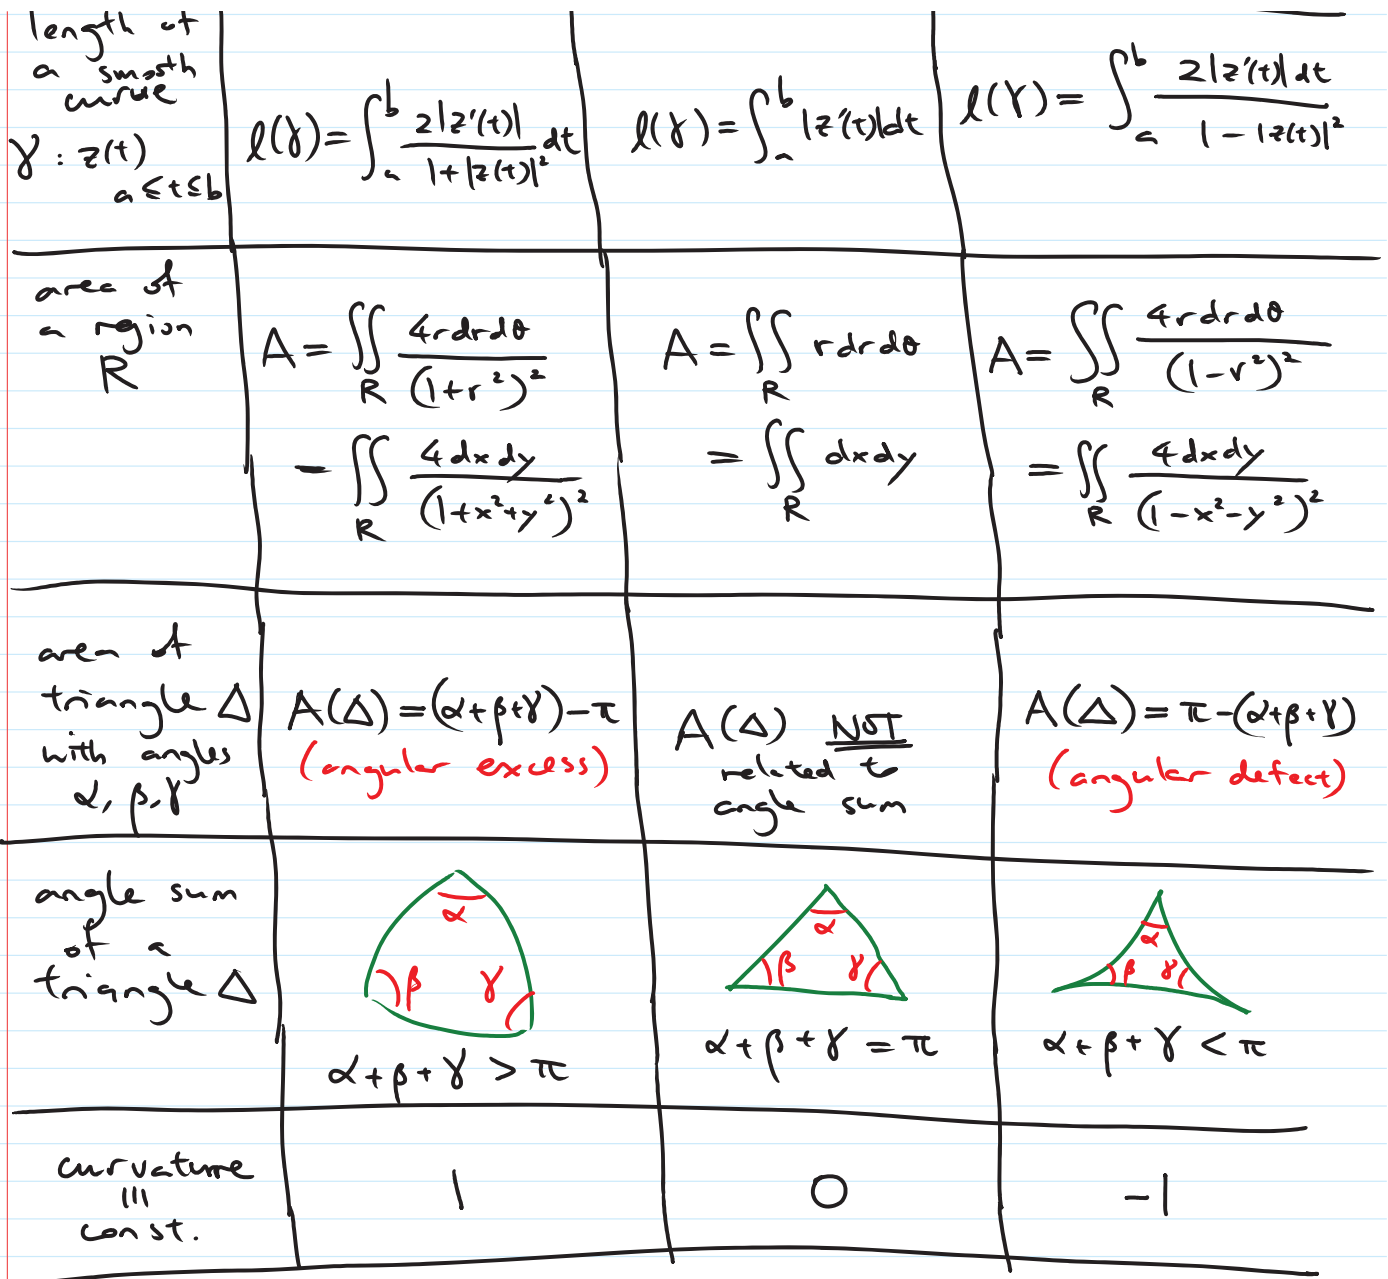 length of
a smooth
curve
γ : z(t)
a ≤ t ≤ b
l(γ) = ∫_a^b 2|z'(t)| / (1+|z(t)|²) dt
l(γ) = ∫_a^b |z'(t)|dt
l(γ) = ∫_a^b 2|z'(t)|dt / (1-|z(t)|²)
area of
a region
R
A = ∬_R 4rdrdθ / (1+r²)²
= ∬_R 4dxdy / (1+x²+y²)²
A = ∬_R rdrdθ
= ∬_R dxdy
A = ∬_R 4rdrdθ / (1-r²)²
= ∬_R 4dxdy / (1-x²-y²)²
area of
triangle Δ
with angles
α, β, γ
A(Δ) = (α+β+γ)-π
(angular excess)
A(Δ) NOT
related to
angle sum
A(Δ) = π-(α+β+γ)
(angular defect)
angle sum
of a
triangle Δ
α
β γ
α+β+γ > π
α
β γ
α+β+γ = π
α
β γ
α+β+γ < π
curvature
≡
const.
1
0
-1